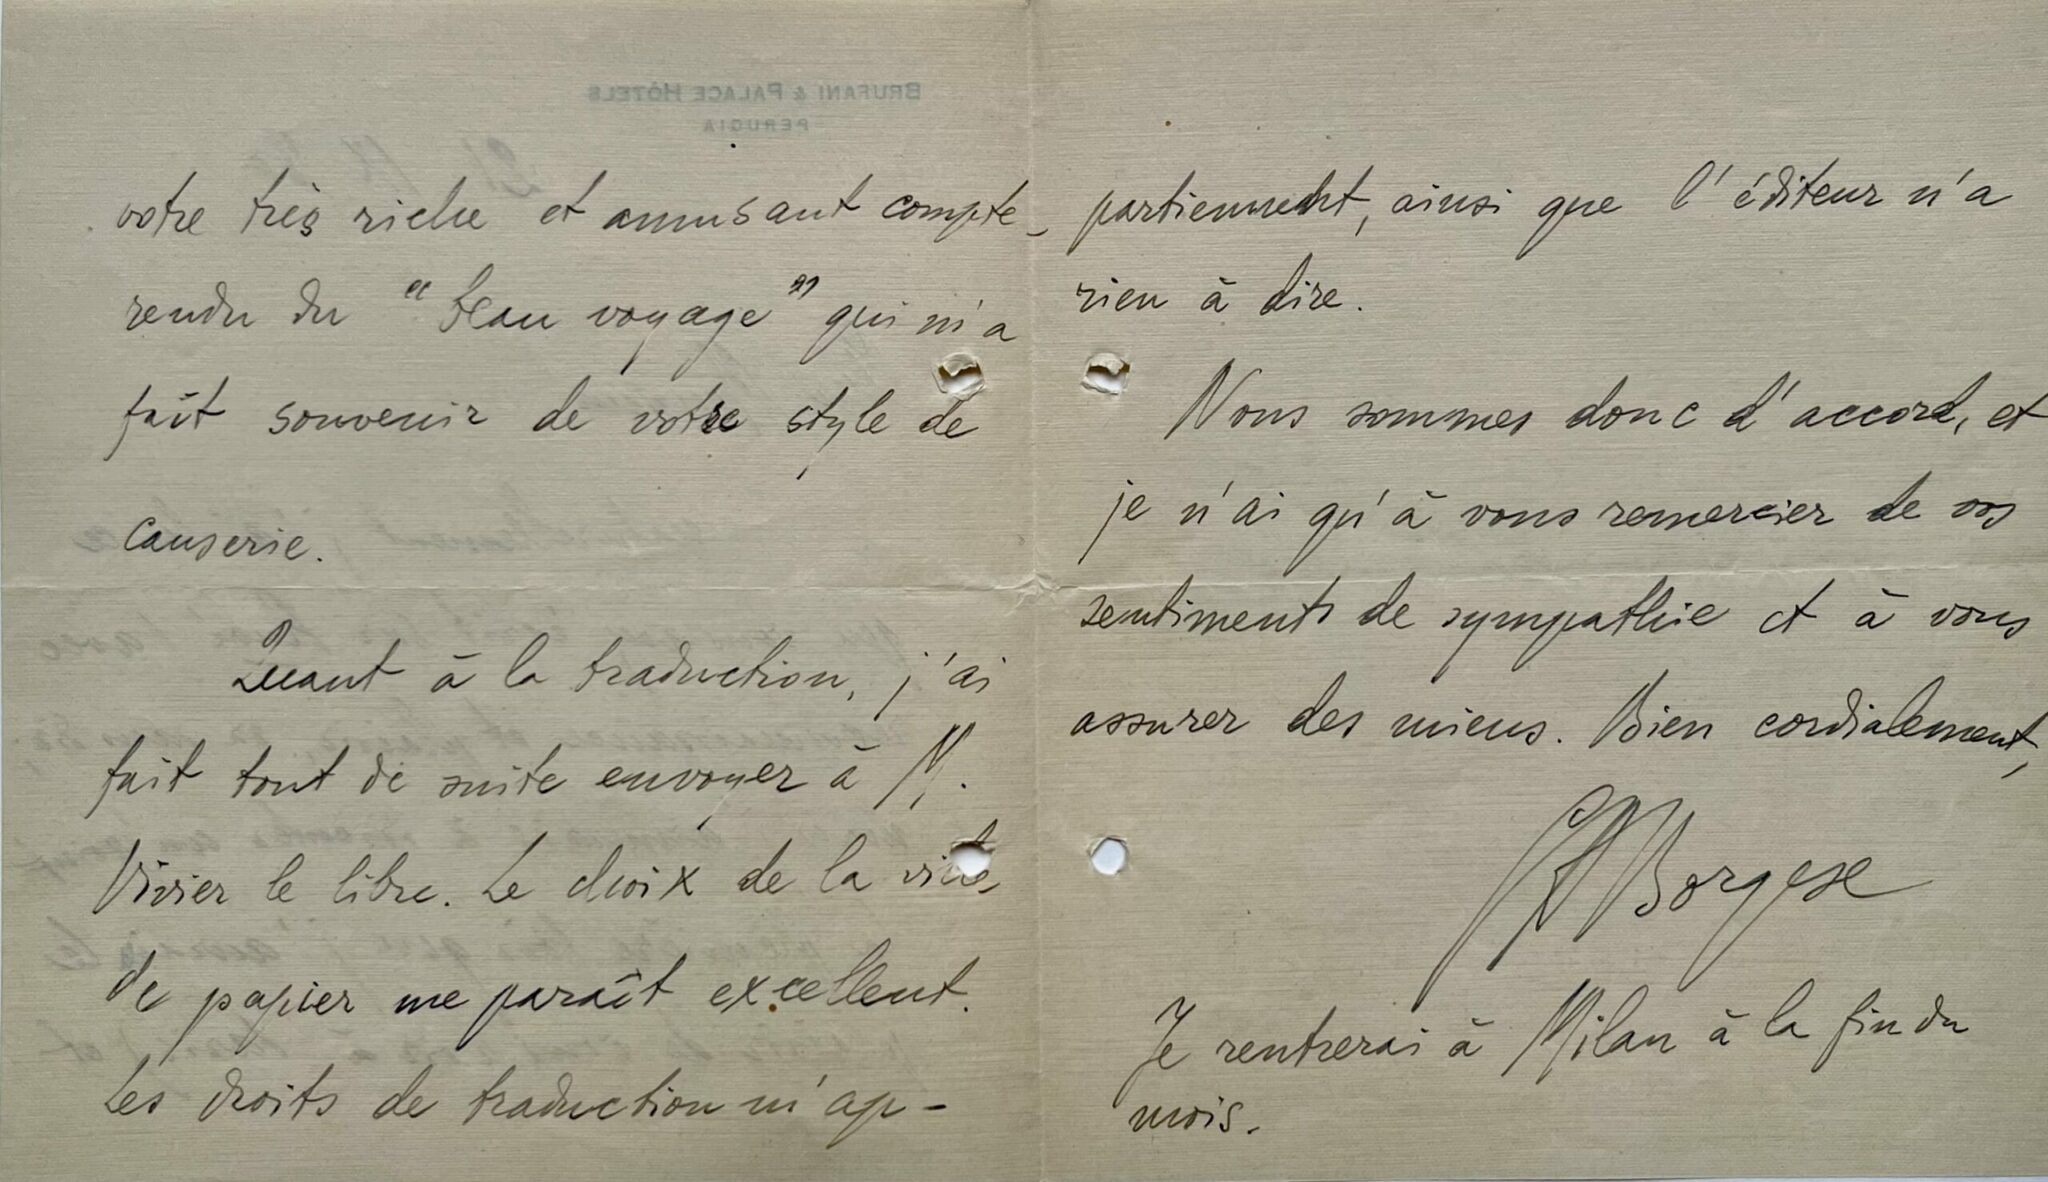 BRUFANI & PALACE HÔTELS
PERUGIA
votre très riche et amusant compte-
rendu du "beau voyage" qui m'a
fait souvenir de votre style de
causerie.
Quant à la traduction, j'ai
fait tout de suite envoyer à M.
Vivier le libre. Le choix de la
de papier me paraît excellent.
Les droits de traduction m'ap-
partiennent, ainsi que l'éditeur n'a
rien à dire.
Nous sommes donc d'accord, et
je n'ai qu'à vous remercier de vos
sentiments de sympathie et à vous
assurer des miens. Bien cordialement,
GABorgese
Je rentrerai à Milan à la fin du
mois.